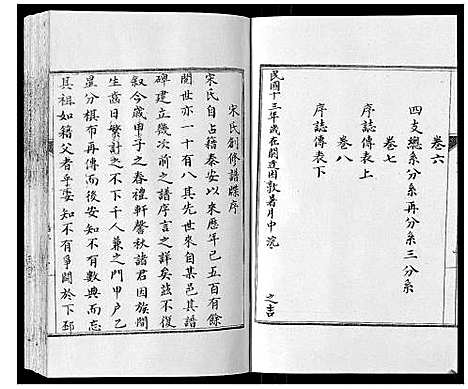 卷六
四支總系分系再分系三分系
卷七
序誌傳表上
卷八
序誌傳表下
民國十三年歲在閼逢困敦暑月中浣之吉
宋氏創修譜牒序
宋氏自占籍泰安以來歷年已五百有餘
閱世亦一十有八其先世來自某邑其譜
碑建立幾次前之譜序言之詳矣茲不復
叙今歲甲子之春禮軒馨秋諸君因族間
生齒日繁計之不下千人兼之門甲戶乙
星分棋布再傳而後安知不有數典而忘
其祖如籍父者乎安知不有爭閧於下邳